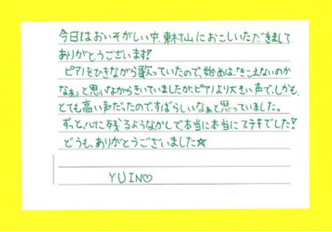 今日はおいそがしい中、東村山におこしいただきまして
ありがとうございます!
ピアノをひきながら歌っていたので、始めは、「きこえないのか
なぁ」と思いながらきいていましたが、ピアノより大きい声で、しかも、
とても高い声だったので、すばらしいなぁと思っていました。
ずっと、心に残るようなかしで本当に本当にステキでした!
どうも、ありがとうございました☆
YUIN♡